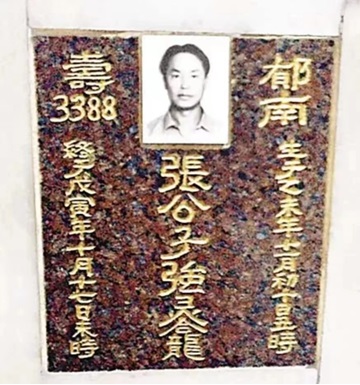 郁南
生于乙未年十二月初十日丑時
張公子強之靈
壽
3388
終于戊寅年十月十七日未時